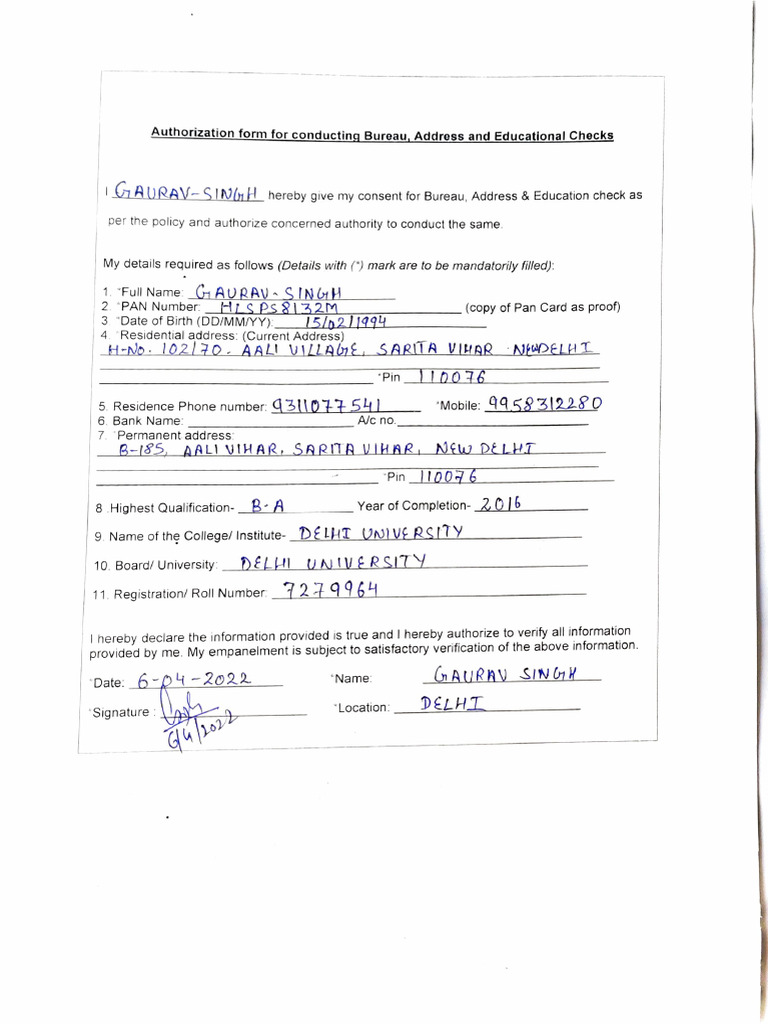 Authorization form for conducting Bureau, Address and Educational Checks
I GAURAV-SINGH hereby give my consent for Bureau, Address & Education check as
per the policy and authorize concerned authority to conduct the same.
My details required as follows (Details with (*) mark are to be mandatorily filled):
1. *Full Name: GAURAV-SINGH
2. *PAN Number: HLSPS8132M (copy of Pan Card as proof)
3 *Date of Birth (DD/MM/YY): 15/02/1994
4. *Residential address: (Current Address)
H-No. 102/70. AALI VILLAGE, SARITA VIHAR NEWDELHI
*Pin 110076
5. Residence Phone number: 9311077541 *Mobile: 9958312280
6. Bank Name: A/c no.
7. *Permanent address:
B-185, AALI VIHAR, SARITA VIHAR, NEW DELHI
*Pin 110076
8 .Highest Qualification- B-A Year of Completion- 2016
9. Name of the College/ Institute- DELHI UNIVERSITY
10. Board/ University: DELHI UNIVERSITY
11. Registration/ Roll Number: 7279964
I hereby declare the information provided is true and I hereby authorize to verify all information
provided by me. My empanelment is subject to satisfactory verification of the above information.
*Date: 6-04-2022 *Name: GAURAV SINGH
*Signature : *Location: DELHI
6/4/2022